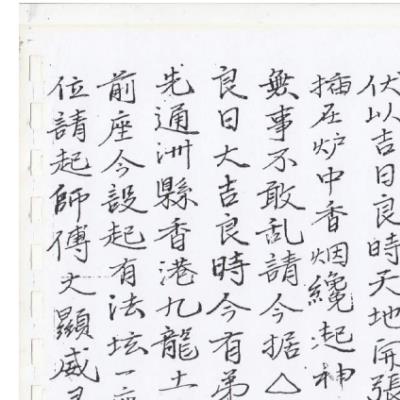 伏以吉日良時天地开張
插在炉中香烟纔起神
無事不敢乱請今据△
良日大吉良時今有弟
先通洲縣香港九龍土
前座今設起有法坛一座
位請起師傅大顯威灵